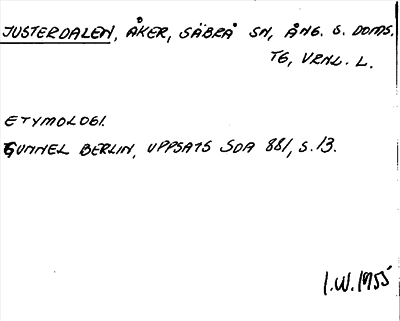 JUSTERDALEN, ÅKER, SÄBRÅ SN, ÅNG. S. DOMS.
TG, VRNL. L.
ETYMOLOGI.
GUNNEL BERLIN, UPPSATS SDA 881, S. 13.
I.W. 1955